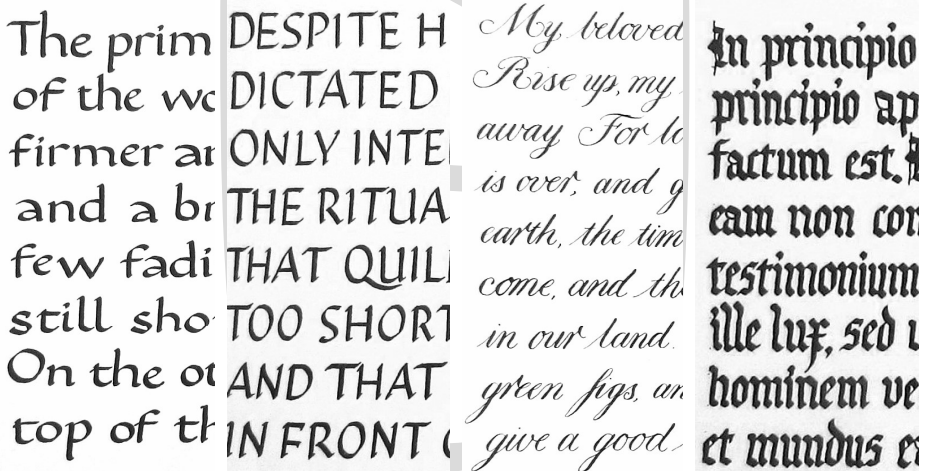 The prim
of the wo
firmer ar
and a br
few fadi
still sho
On the ot
top of th
DESPITE H
DICTATED
ONLY INTE
THE RITUA
THAT QUIL
TOO SHORT
AND THAT
IN FRONT
My beloved
Rise up, my
away For lo
is over, and g
earth, the tim
come, and the
in our land.
green figs, an
give a good
In principio
principio ap
factum est.
eam non con
testimonium
ille lux, sed
hominem ve
et mundus